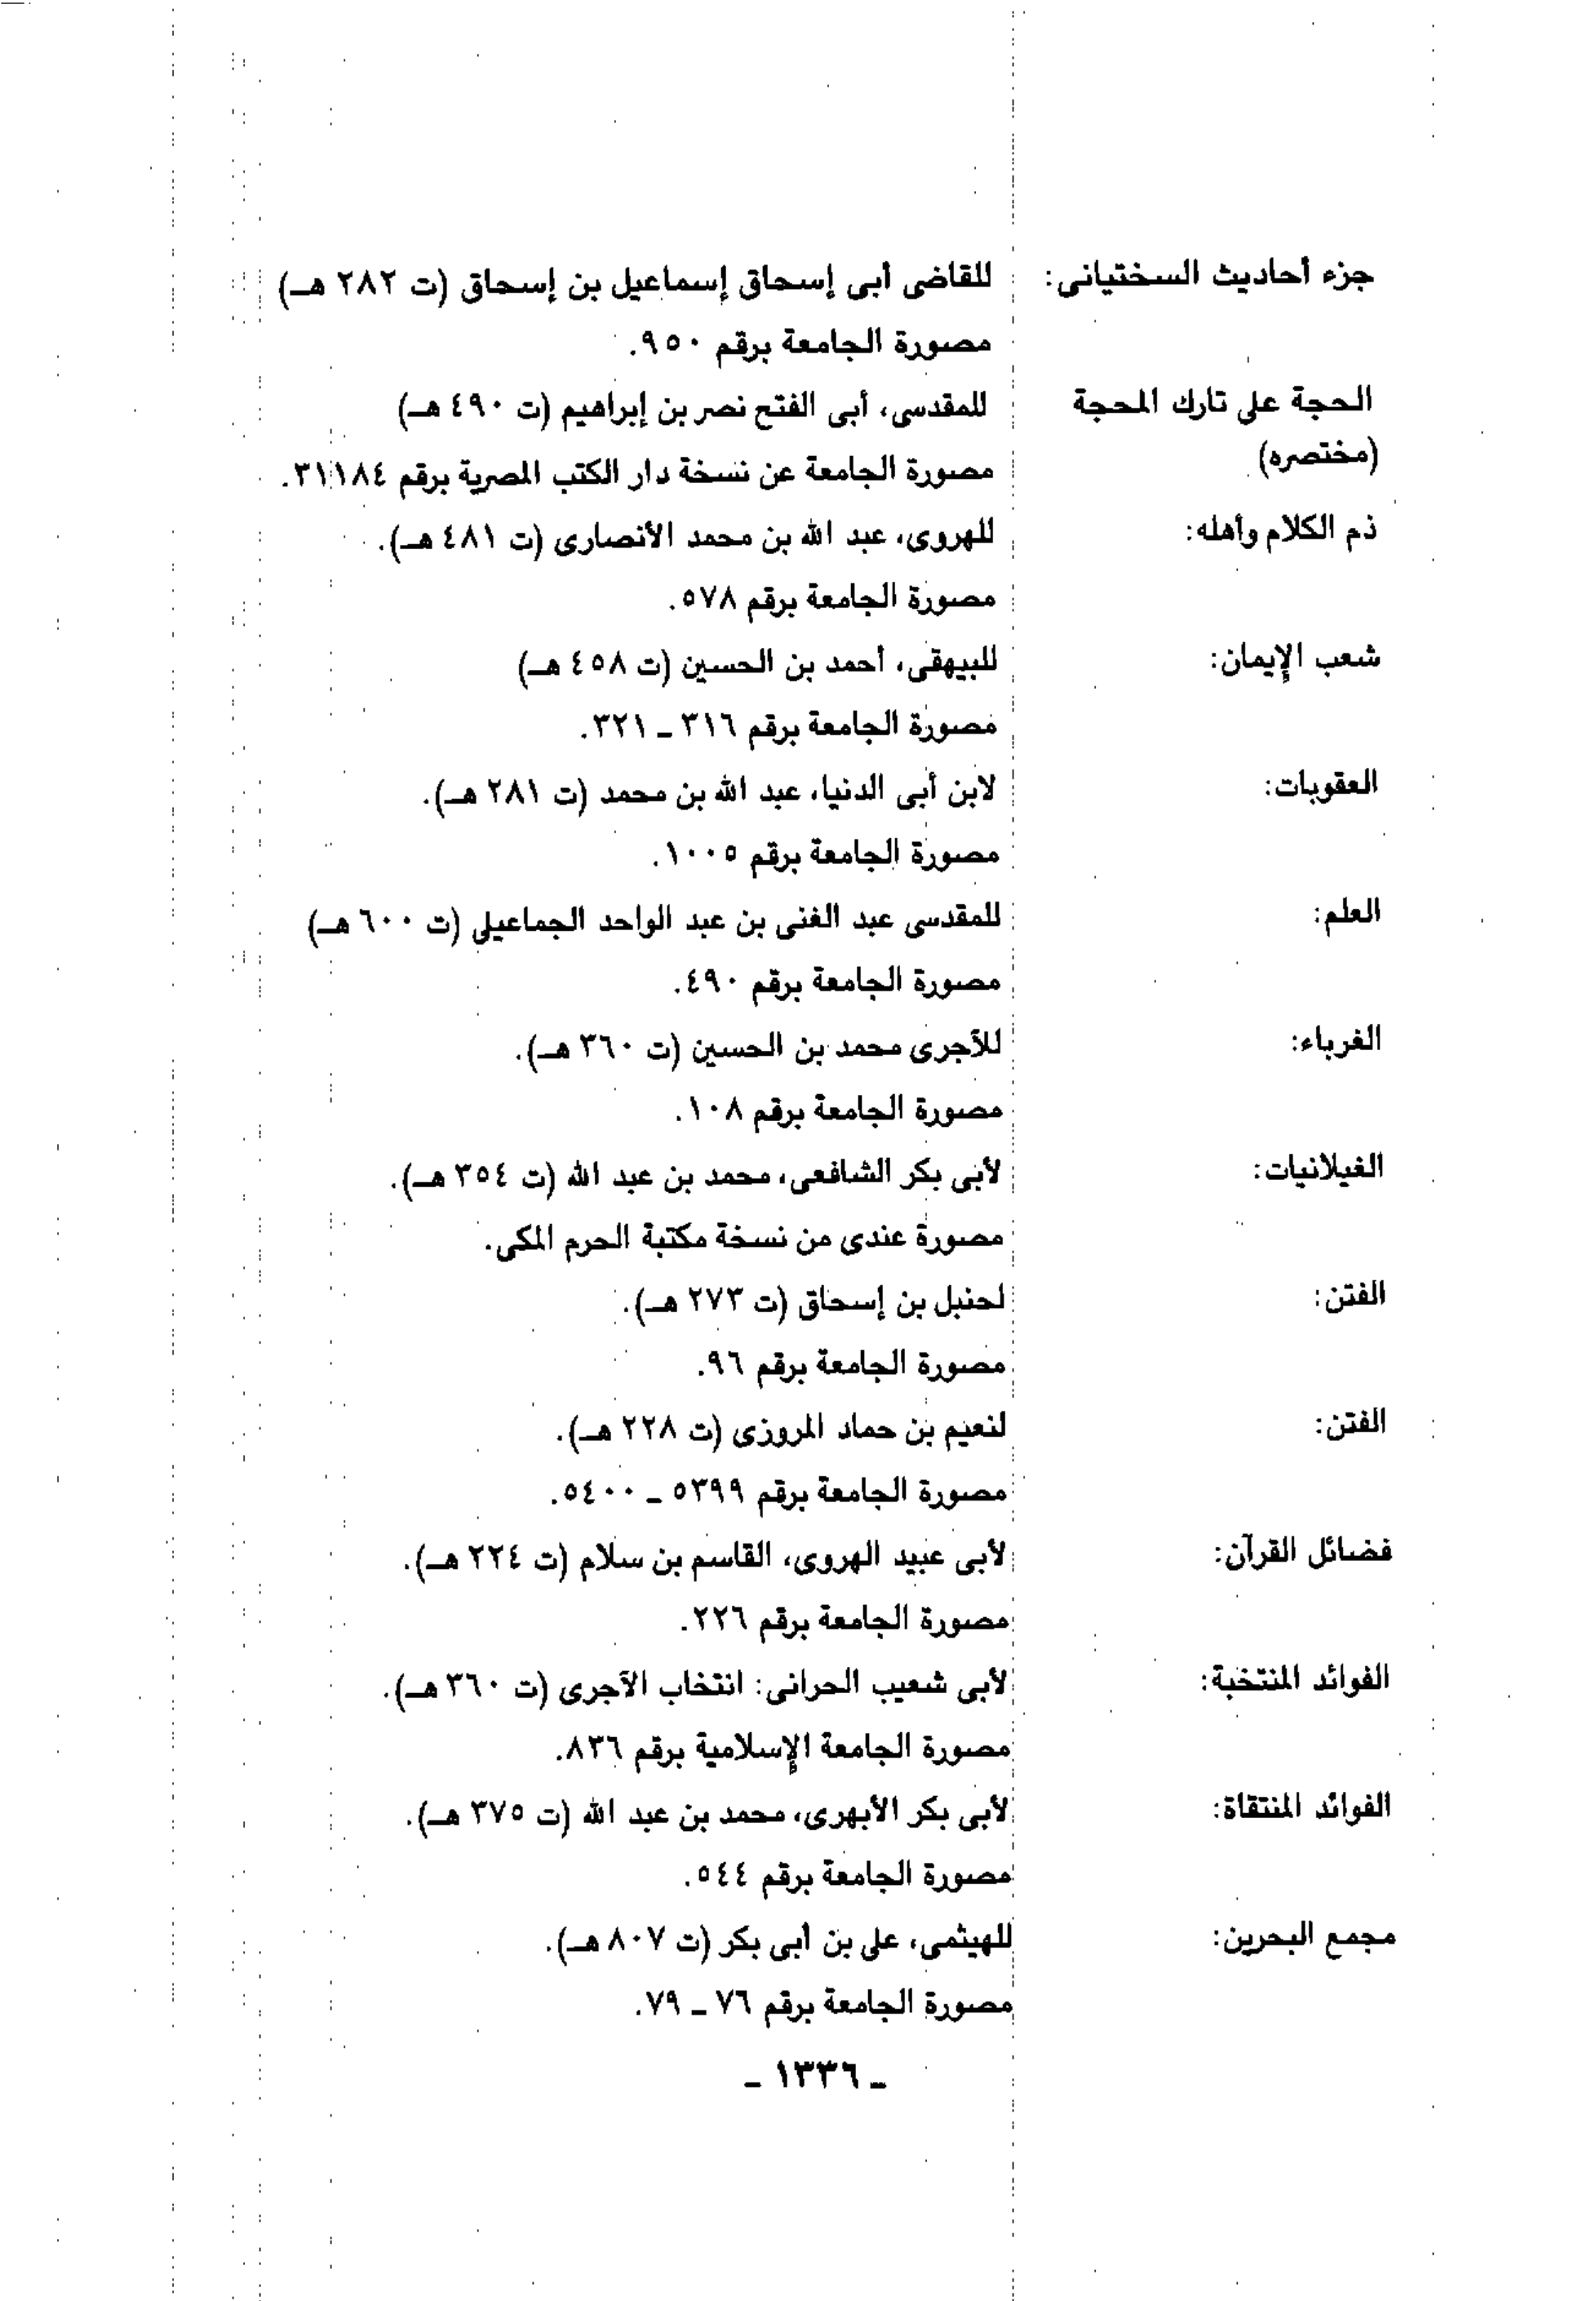 جزء أحاديث السختيانى: للقاضى أبى إسحاق إسماعيل بن إسحاق (ت ٢٨٢ هـ)
مصورة الجامعة برقم ٩٥٠.
الحجة على تارك المحجة للمقدسى، أبى الفتح نصر بن إبراهيم (ت ٤٩٠ هـ)
(مختصره) مصورة الجامعة عن نسخة دار الكتب المصرية برقم ٣١١٨٤.
ذم الكلام وأهله: للهروى، عبد الله بن محمد الأنصارى (ت ٤٨١ هـ).
مصورة الجامعة برقم ٥٧٨.
شعب الإيمان: للبيهقى، أحمد بن الحسين (ت ٤٥٨ هـ)
مصورة الجامعة برقم ٣١٦ ـ ٣٢١.
العقوبات: لابن أبى الدنيا، عبد الله بن محمد (ت ٢٨١ هـ).
مصورة الجامعة برقم ١٠٠٥.
العلم: للمقدسى عبد الغنى بن عبد الواحد الجماعيلى (ت ٦٠٠ هـ)
مصورة الجامعة برقم ٤٩٠.
الغرباء: للآجرى محمد بن الحسين (ت ٣٦٠ هـ).
مصورة الجامعة برقم ١٠٨.
الغيلانيات: لأبى بكر الشافعى، محمد بن عبد الله (ت ٣٥٤ هـ).
مصورة عندى من نسخة مكتبة الحرم المكى.
الفتن: لحنبل بن إسحاق (ت ٢٧٣ هـ).
مصورة الجامعة برقم ٩٦.
الفتن: لنعيم بن حماد المروزى (ت ٢٢٨ هـ).
مصورة الجامعة برقم ٥٣٩٩ ـ ٥٤٠٠.
فضائل القرآن: لأبى عبيد الهروى، القاسم بن سلام (ت ٢٢٤ هـ).
مصورة الجامعة برقم ٢٢٦.
الفوائد المنتخبة: لأبى شعيب الحرانى: انتخاب الآجرى (ت ٣٦٠ هـ).
مصورة الجامعة الإسلامية برقم ٨٣٦.
الفوائد المنتقاة: لأبى بكر الأبهرى، محمد بن عبد الله (ت ٣٧٥ هـ).
مصورة الجامعة برقم ٥٤٤.
مجمع البحرين: للهيثمى، على بن أبى بكر (ت ٨٠٧ هـ).
مصورة الجامعة برقم ٧٦ ـ ٧٩.
ـ ١٣٣٦ ـ